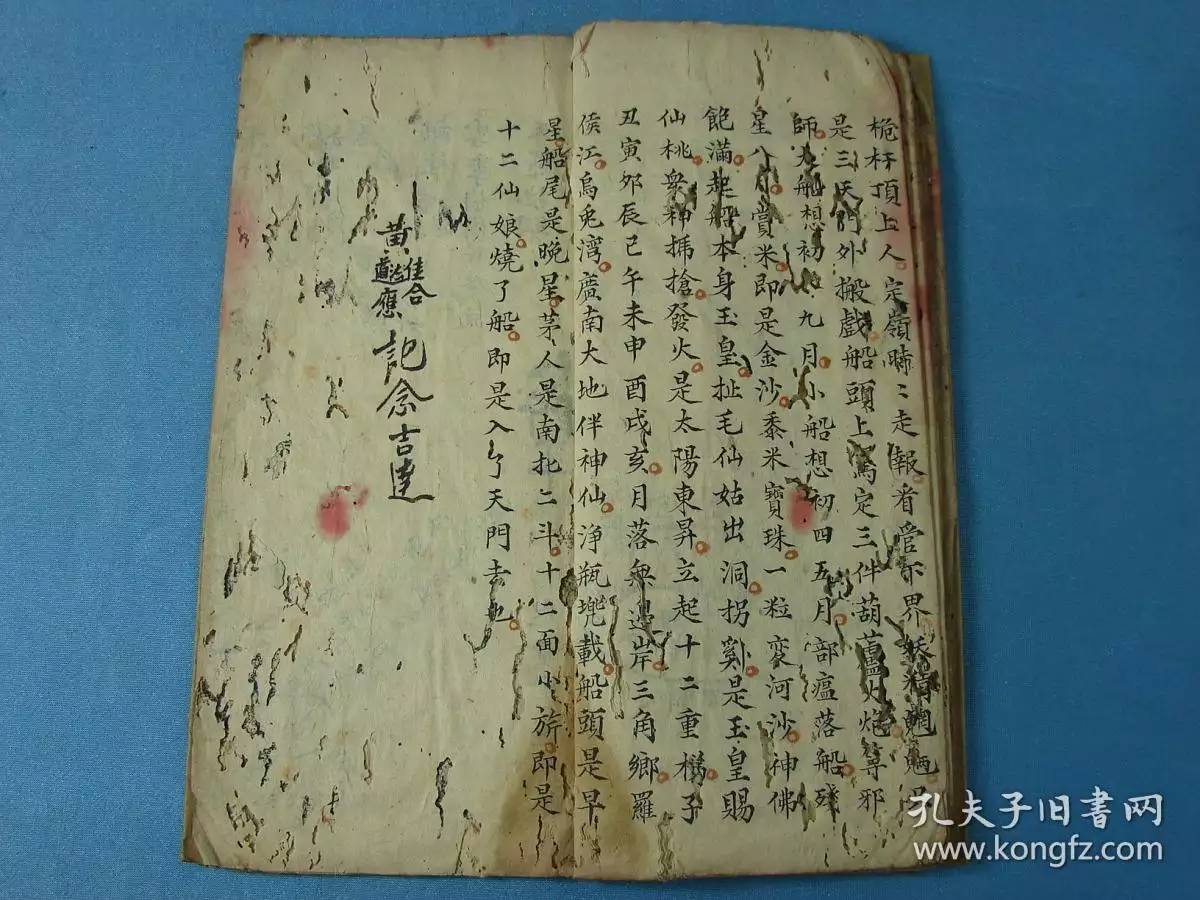 桅杆頂上人定嶺時〻走報看管下界妖精魍魎
是三天門外搬戲船頭上寫定三件葫蘆火炮尋邪
師大船想初九月小船想初四五月部瘟落船残
星八月賞米即是金沙黍米寶珠一粒變河沙神佛
飽滿起船本身玉皇扯毛仙姑出洞拐雞是玉皇賜
仙桃衆神揣搶發火是太陽東昇立起十二重樓子
丑寅夘辰巳午未申酉戌亥月落無邊岸三角鄉羅
侯江烏兎湾廣南大地伴神仙浄瓶兠載船頭是早
星船尾是晚星茅人是南北二斗十二面小旂即是
十二仙娘燒了船即是入了天門去也
黄應 記念吉達
孔夫子旧书网
www.kongfz.com